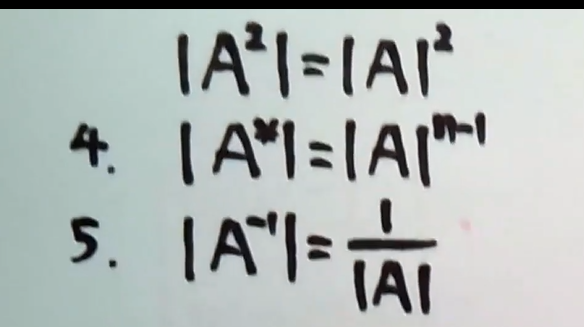 |A²|=|A|²
4. |A*|=|A|ⁿ⁻¹
5. |A⁻¹|=1/|A|